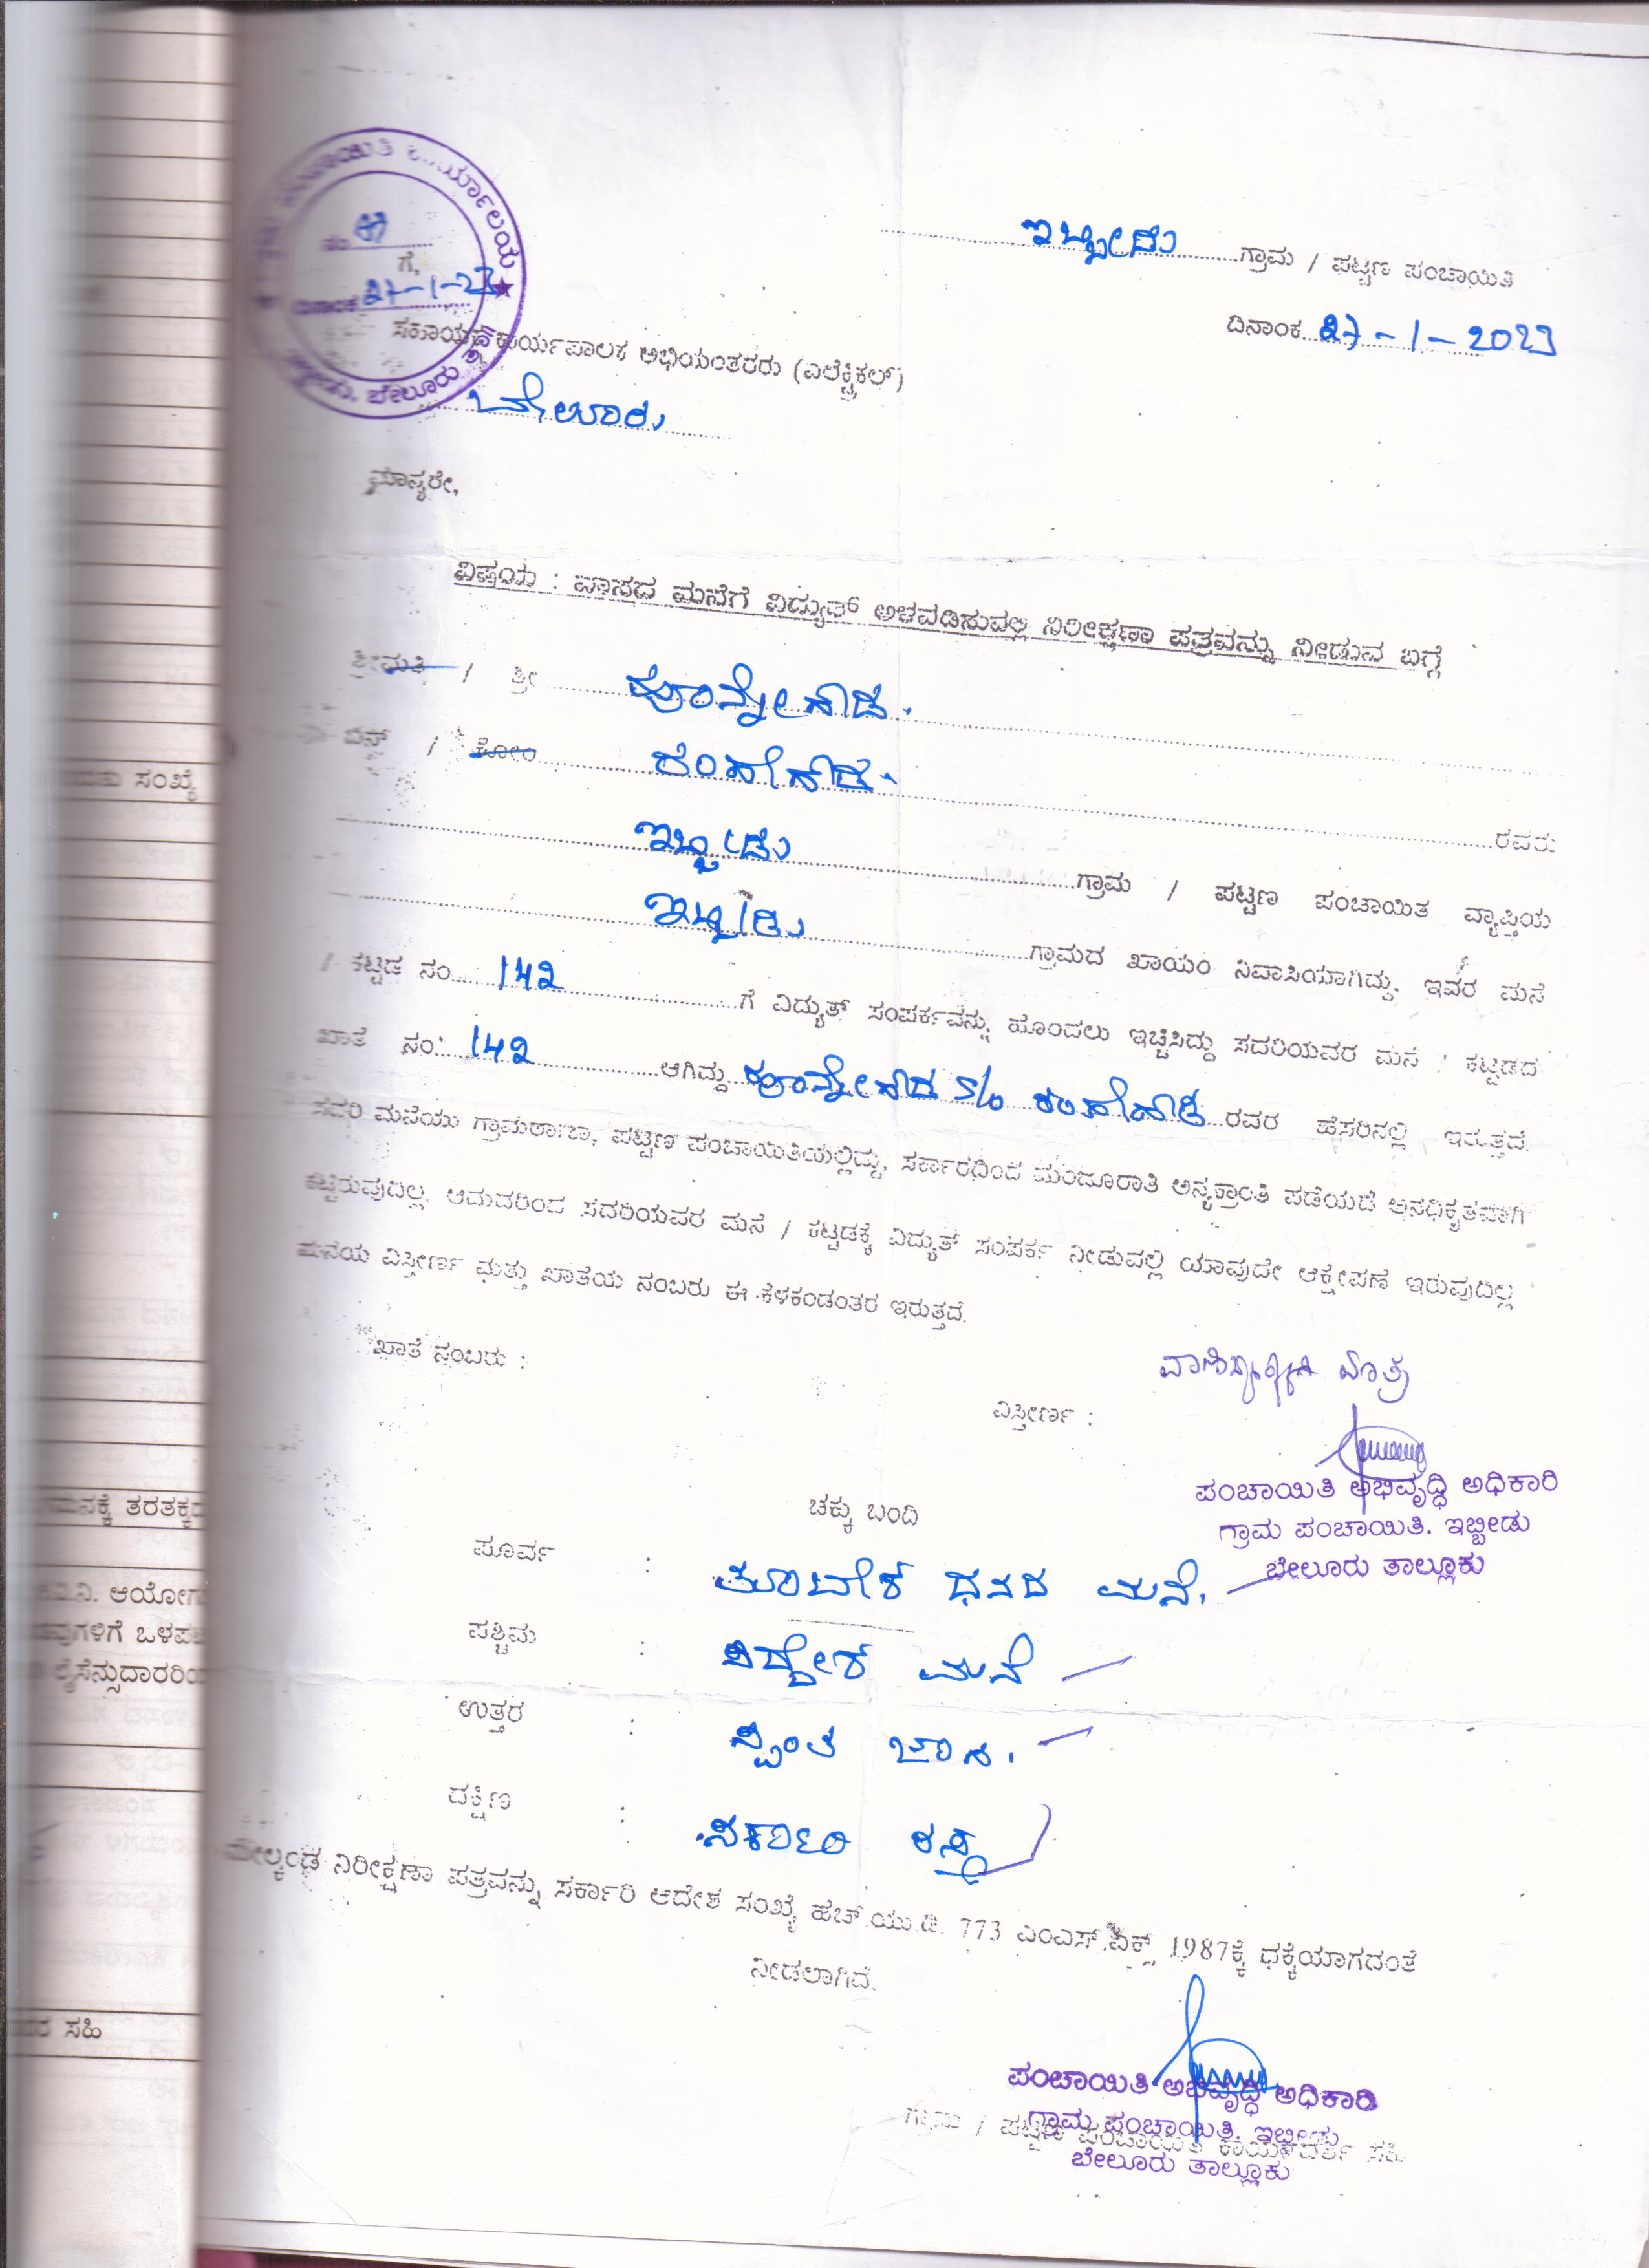 ಇಬ್ಬೀಡು ಗ್ರಾಮ / ಪಟ್ಟಣ ಪಂಚಾಯಿತಿ
ದಿನಾಂಕ 27-1-2023
ಕಾರ್ಯಾಲಯ
ಬೇಲೂರು
27-1-23
ಗೆ,
ಸಹಾಯಕ ಕಾರ್ಯಪಾಲಕ ಅಭಿಯಂತರರು (ಎಲೆಕ್ಟ್ರಿಕಲ್)
ಬೇಲೂರು
ಮಾನ್ಯರೇ,
ವಿಷಯ : ವಾಸದ ಮನೆಗೆ ವಿದ್ಯುತ್ ಅಳವಡಿಸುವಲ್ಲಿ ನಿರೀಕ್ಷಣಾ ಪತ್ರವನ್ನು ನೀಡುವ ಬಗ್ಗೆ
ಶ್ರೀಮತಿ / ಶ್ರೀ ಹೊನ್ನೇಗೌಡ.
ಬಿನ್ / ಕೋಂ ರಂಗೇಗೌಡ.
ರವರು
ಇಬ್ಬೀಡು ಗ್ರಾಮ / ಪಟ್ಟಣ ಪಂಚಾಯಿತ ವ್ಯಾಪ್ತಿಯ
ಇಬ್ಬೀಡು ಗ್ರಾಮದ ಖಾಯಂ ನಿವಾಸಿಯಾಗಿದ್ದು, ಇವರ ಮನೆ
/ ಕಟ್ಟಡ ನಂ. 142 ಗೆ ವಿದ್ಯುತ್ ಸಂಪರ್ಕವನ್ನು ಹೊಂದಲು ಇಚ್ಚಿಸಿದ್ದು ಸದರಿಯವರ ಮನೆ / ಕಟ್ಟಡದ
ಖಾತೆ ನಂ: 142 ಆಗಿದ್ದು ಹೊನ್ನೇಗೌಡ S/o ರಂಗೇಗೌಡ ರವರ ಹೆಸರಿನಲ್ಲಿ ಇರುತ್ತದೆ.
ಸದರಿ ಮನೆಯು ಗ್ರಾಮಠಾಣಾ, ಪಟ್ಟಣ ಪಂಚಾಯಿತಿಯಲ್ಲಿದ್ದು, ಸರ್ಕಾರದಿಂದ ಮಂಜೂರಾತಿ ಅನ್ಯಕ್ರಾಂತಿ ಪಡೆಯದೆ ಅನಧಿಕೃತವಾಗಿ
ಕಟ್ಟಿರುವುದಿಲ್ಲ. ಆದುದರಿಂದ ಸದರಿಯವರ ಮನೆ / ಕಟ್ಟಡಕ್ಕೆ ವಿದ್ಯುತ್ ಸಂಪರ್ಕ ನೀಡುವಲ್ಲಿ ಯಾವುದೇ ಆಕ್ಷೇಪಣೆ ಇರುವುದಿಲ್ಲ
ಮನೆಯ ವಿಸ್ತೀರ್ಣ ಮತ್ತು ಖಾತೆಯ ನಂಬರು ಈ ಕೆಳಕಂಡಂತರ ಇರುತ್ತದೆ.
ಖಾತೆ ನಂಬರು :
ವಿಸ್ತೀರ್ಣ :
ಪಂಚಾಯಿತಿ ಅಭಿವೃದ್ಧಿ ಅಧಿಕಾರಿ
ಗ್ರಾಮ ಪಂಚಾಯಿತಿ. ಇಬ್ಬೀಡು
ಬೇಲೂರು ತಾಲ್ಲೂಕು
ಚಕ್ಕು ಬಂದಿ
ಪೂರ್ವ : ಮನೆ.
ಪಶ್ಚಿಮ : ಮನೆ
ಉತ್ತರ : ಸ್ವಂತ ಜಾಗ.
ದಕ್ಷಿಣ : ಸರ್ಕಾರಿ ರಸ್ತೆ
ಮೇಲ್ಕಂಡ ನಿರೀಕ್ಷಣಾ ಪತ್ರವನ್ನು ಸರ್ಕಾರಿ ಆದೇಶ ಸಂಖ್ಯೆ ಹೆಚ್.ಯು.ಡಿ. 773 ಎಂಎಸ್.ಎಕ್ಸ್ 1987ಕ್ಕೆ ಧಕ್ಕೆಯಾಗದಂತೆ
ನೀಡಲಾಗಿದೆ.
ಪಂಚಾಯಿತಿ ಅಭಿವೃದ್ಧಿ ಅಧಿಕಾರಿ
ಗ್ರಾಮ ಪಂಚಾಯಿತಿ. ಇಬ್ಬೀಡು
ಗ್ರಾಮ / ಪಟ್ಟಣ ಪಂಚಾಯಿತಿ ಕಾರ್ಯದರ್ಶಿ ಸಹಿ
ಬೇಲೂರು ತಾಲ್ಲೂಕು
ಸಂಖ್ಯೆ
ಆಯೋಗ
ಸಹಿ